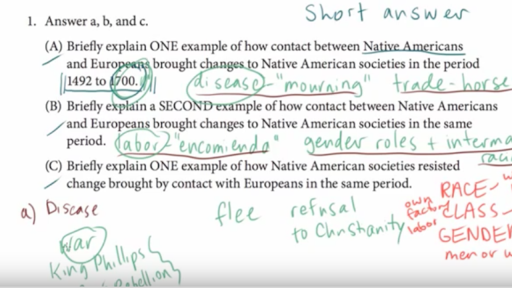 Short answer
1. Answer a, b, and c.
(A) Briefly explain ONE example of how contact between Native Americans
and Europeans brought changes to Native American societies in the period
1492 to 1700.
disease - "mourning" trade-horse
(B) Briefly explain a SECOND example of how contact between Native Americans
and Europeans brought changes to Native American societies in the same
period.
labor "encomienda" gender roles +
(C) Briefly explain ONE example of how Native American societies resisted
change brought by contact with Europeans in the same period.
a) Disease
flee
refusal
to Christianity
own
factory
labor
RACE-
CLASS-
GENDER
men or
war
King Phillips
Rebellion